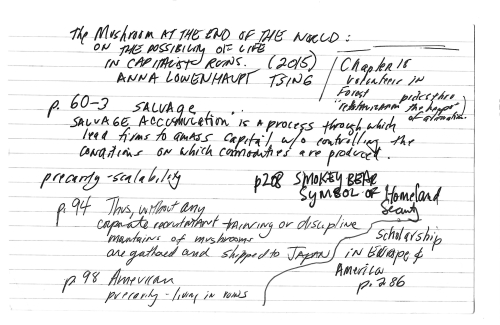 The Mushroom AT THE END OF THE WORLD:
ON THE POSSIBILITY OF LIFE
IN CAPITALIST RUINS. (2015)
ANNA LOWENHAUPT TSING
Chapter 18
Volunteer in
Forest
p. 60-3 SALVAGE
SALVAGE ACCUMULATION is a process through which
lead firms to amass capital w/o controlling the
conditions on which commodities are produced.
precarity-scalability
p208 SMOKEY BEAR
SYMBOL OF Homeland
Security
p. 94 Thus, without any
corporate recruitment training or discipline
mountains of mushrooms
are gathered and shipped to JAPAN
scholarship
in Europe &
America
p. 286
p. 98 American
precarity - living in ruins